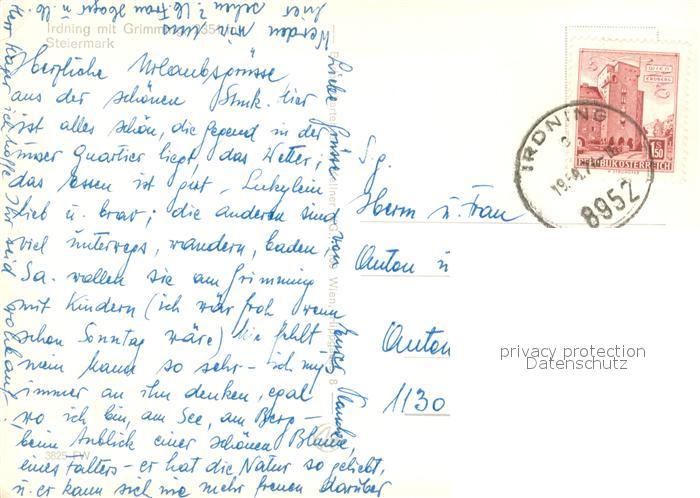 Irdning mit Grimming, 2351
Steiermark
Herzliche Urlaubsgrüsse
aus der schönen Stmk. hier
ist alles schön, die Gegend in der
unser Quartier liegt, das Wetter,
das Essen ist gut – Lukylein
lieb u. brav; die anderen sind
viel unterwegs, wandern, baden,
Sa. wollen sie am Grimming
mit Kindern (ich wär froh wenn
schon Sonntag wäre) hin fehlt
mein Mann so sehr – ich muß
immer an ihn denken, egal
wo ich bin, am See, am Berg –
beim Anblick einer schönen Blume,
eines Falters – er hat die Natur so geliebt,
u. er kann sich nie mehr freuen darüber
Liebe Grüsse von
Herr Hager ich hoffe Ihr seid wohlauf
Werden wir uns
hier sehen? Lb. Frau Hager u. lb.
3825 FW
S.g.
Herrn u. Frau
Anton u
Anton
1130
WIEN
ERDBERG
1.50
REPUBLIK ÖSTERREICH
IRDNING
8952
privacy protection
Datenschutz